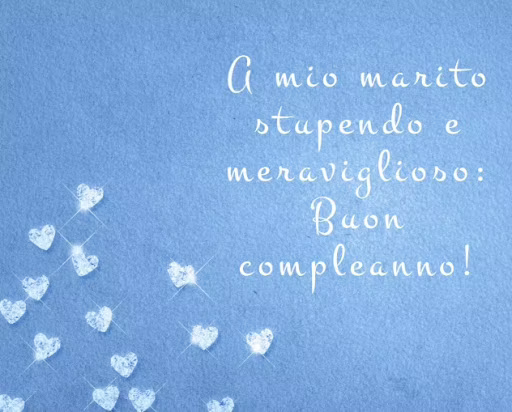 A mio marito
stupendo e
meraviglioso:
Buon
compleanno!